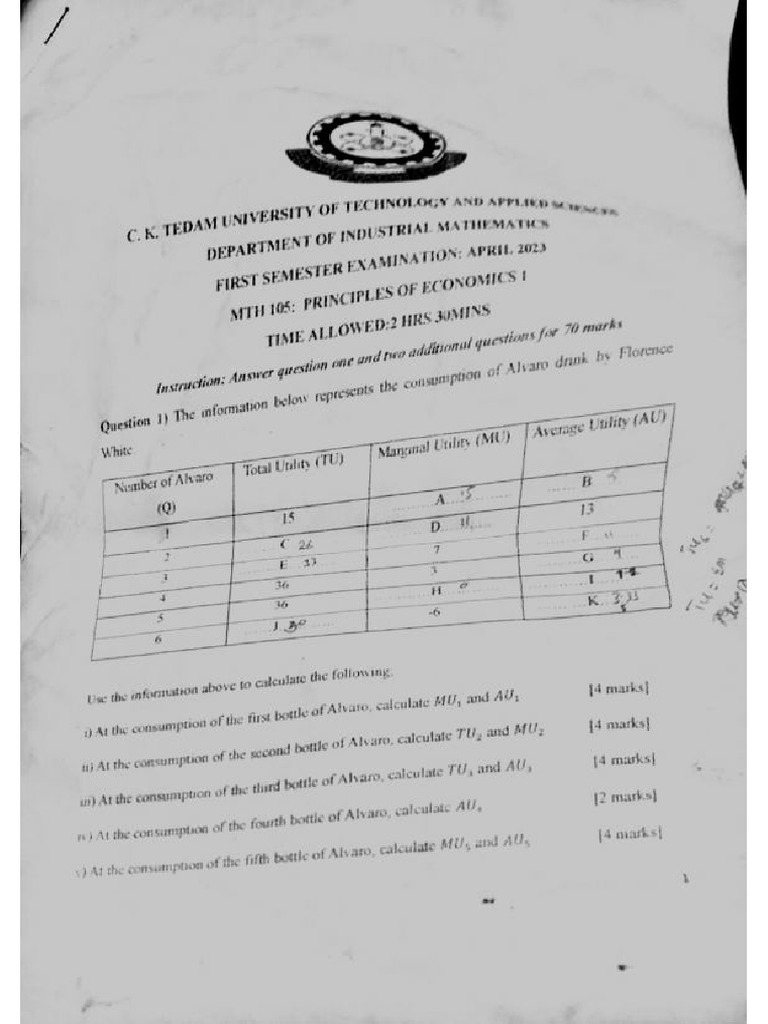 C. K. TEDAM UNIVERSITY OF TECHNOLOGY AND APPLIED SCIENCES
DEPARTMENT OF INDUSTRIAL MATHEMATICS
FIRST SEMESTER EXAMINATION: APRIL 2023
MTH 105: PRINCIPLES OF ECONOMICS 1
TIME ALLOWED:2 HRS 30MINS
Instruction: Answer question one and two additional questions for 70 marks
Question 1) The information below represents the consumption of Alvaro drink by Florence
White
Number of Alvaro (Q) Total Utility (TU) Marginal Utility (MU) Average Utility (AU)
1 15 A 15 B
2 C 26 D 11 13
3 E 33 7 F 11
4 36 3 G 9
5 36 H 0 I
6 J 30 -6 K
Use the information above to calculate the following.
i) At the consumption of the first bottle of Alvaro, calculate MU₁ and AU₁ [4 marks]
ii) At the consumption of the second bottle of Alvaro, calculate TU₂ and MU₂ [4 marks]
iii) At the consumption of the third bottle of Alvaro, calculate TU₃ and AU₃ [4 marks]
iv) At the consumption of the fourth bottle of Alvaro, calculate AU₄ [2 marks]
v) At the consumption of the fifth bottle of Alvaro, calculate MU₅ and AU₅ [4 marks]
1